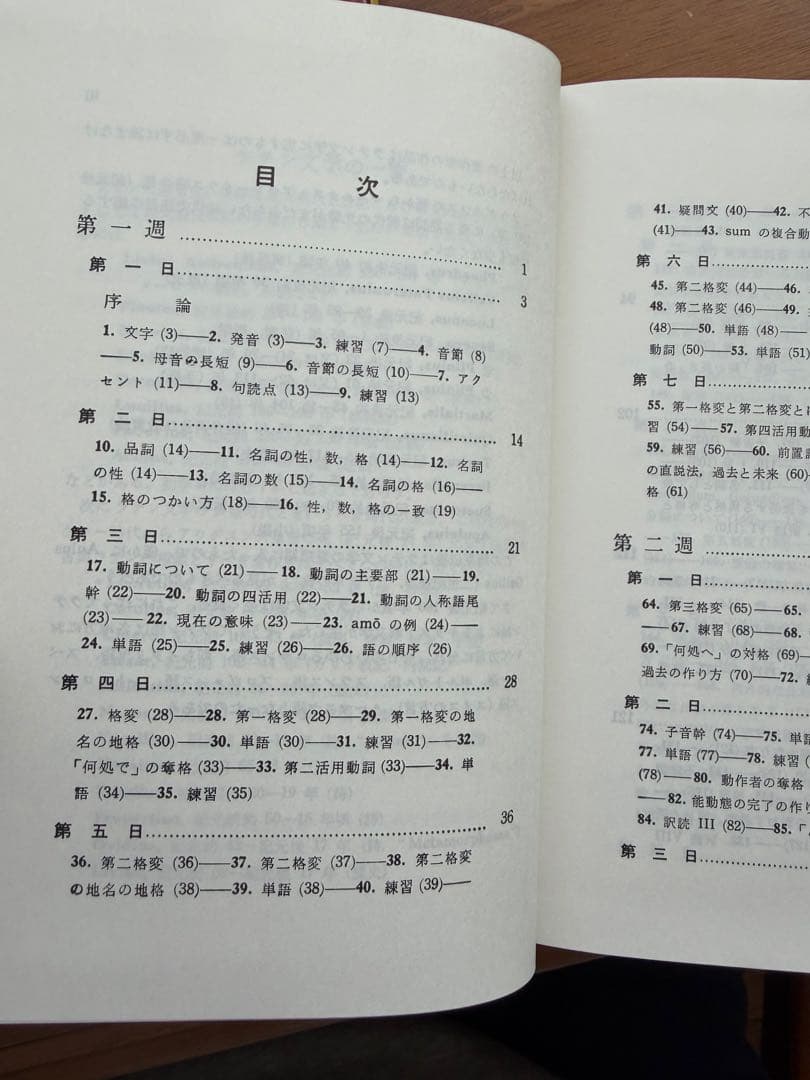 目次
第一週 1
第一日 3
序論
1. 文字 (3)——2. 発音 (3)——3. 練習 (7)——4. 音節 (8)
——5. 母音の長短 (9)——6. 音節の長短 (10)——7. アク
セント (11)——8. 句読点 (13)——9. 練習 (13)
第二日 14
10. 品詞 (14)——11. 名詞の性, 数, 格 (14)——12. 名詞
の性 (14)——13. 名詞の数 (15)——14. 名詞の格 (16)——
15. 格のつかい方 (18)——16. 性, 数, 格の一致 (19)
第三日 21
17. 動詞について (21)——18. 動詞の主要部 (21)——19.
幹 (22)——20. 動詞の四活用 (22)——21. 動詞の人称語尾
(23)——22. 現在の意味 (23)——23. amō の例 (24)——
24. 単語 (25)——25. 練習 (26)——26. 語の順序 (26)
第四日 28
27. 格変 (28)——28. 第一格変 (28)——29. 第一格変の地
名の地格 (30)——30. 単語 (30)——31. 練習 (31)——32.
「何処で」の奪格 (33)——33. 第二活用動詞 (33)——34. 単
語 (34)——35. 練習 (35)
第五日 36
36. 第二格変 (36)——37. 第二格変 (37)——38. 第二格変
の地名の地格 (38)——39. 単語 (38)——40. 練習 (39)——
41. 疑問文 (40)——42. 不
(41)——43. sum の複合動
第六日
45. 第二格変 (44)——46.
48. 第二格変 (46)——49.
(48)——50. 単語 (48)——
動詞 (50)——53. 単語 (51)
第七日
55. 第一格変と第二格変と
習 (54)——57. 第四活用動
59. 練習 (56)——60. 前置
の直説法, 過去と未来 (60)
格 (61)
第二週
第一日
64. 第三格変 (65)——65.
——67. 練習 (68)——68.
69.「何処へ」の対格 (69)—
過去の作り方 (70)——72.
第二日
74. 子音幹 (74)——75. 単
77. 単語 (77)——78. 練習
(78)——80. 動作者の奪格
——82. 能動態の完了の作り
84. 訳読 III (82)——85.「
第三日